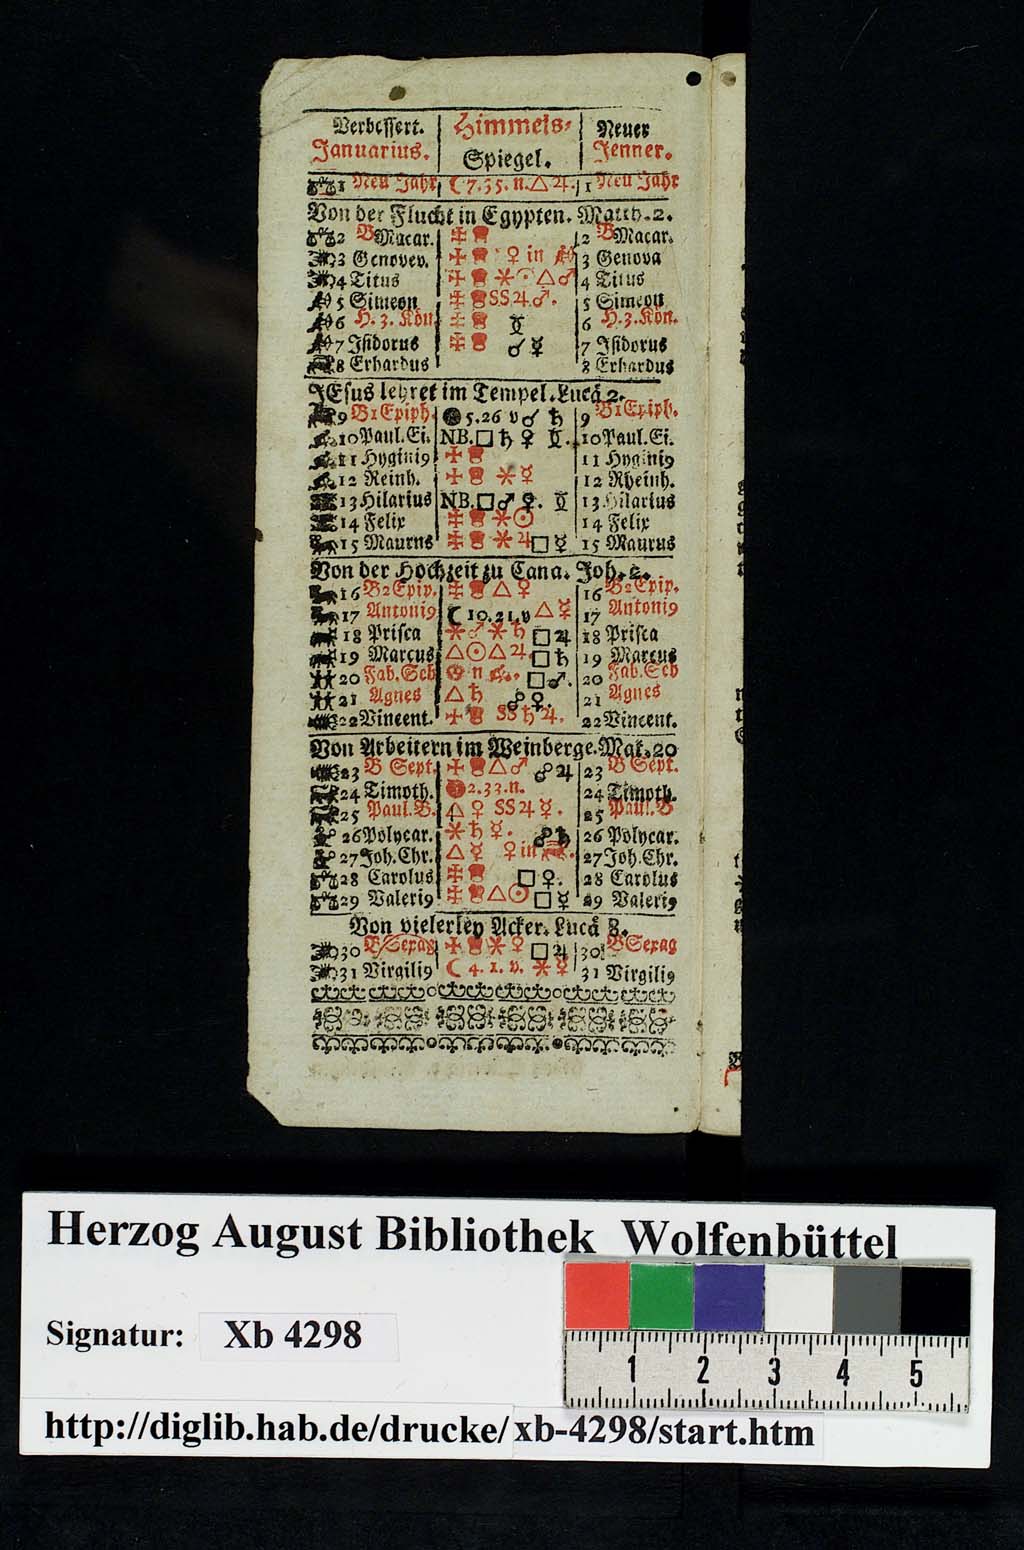 Verbessert. Himmels- Neuer
Januarius. Spiegel. Jenner.
1 Neu Jahr ☾ 7. 35. n. △ ♃. 1 Neu Jahr
Von der Flucht in Egypten. Matth. 2.
2 B Macar. 2 B Macar.
3 Genovev. ♀ in 3 Genova
4 Titus ⚹ ☉ △ ♂ 4 Titus
5 Simeon SS ♃ ♂. 5 Simeon
6 H. 3. Kön. 6 H. 3. Kön.
7 Isidorus ☌ ☿ 7 Isidorus
8 Erhardus 8 Erhardus
JEsus lehret im Tempel. Lucå 2.
9 B1 Epiph. 5. 26 v ☌ ♄ 9 B1 Epiph.
10 Paul. Ei. NB. □ ♄ ♀ 10 Paul. Ei.
11 Hygini9 11 Hygini9
12 Reinh. ⚹ ☿ 12 Rheinh.
13 Hilarius NB. □ ♂ ♀. 13 Hilarius
14 Felix ⚹ ☉ 14 Felix
15 Maurns ⚹ ♃ □ ☿ 15 Maurus
Von der Hochzeit zu Cana. Joh. 2.
16 B2 Epip. △ ♀ 16 B2 Epip.
17 Antoni9 ☾ 10. 21. v △ ☿ 17 Antoni9
18 Prisca ⚹ ♂ ⚹ ♄ □ ♃ 18 Prisca
19 Marcus △ ☉ △ ♃. □ ♄ 19 Marcus
20 Fab. Seb n □ ♂. 20 Fab. Seb
21 Agnes △ ♄ ☍ ♀. 21 Agnes
22 Vincent. SS ♄ ♃. 22 Vincent.
Von Arbeitern im Weinberge. Mat. 20
23 B Sept. △ ♂ ☍ ♃ 23 B Sept.
24 Timoth. 2. 33. n. 24 Timoth.
25 Paul. B. △ ♀ SS ♃ ☿. 25 Paul. B
26 Polycar. ⚹ ♄ ☿. ☍ ♄ 26 Polycar.
27 Joh. Chr. △ ☿ ♀ in 27 Joh. Chr.
28 Carolus □ ♀. 28 Carolus
29 Valeri9 △ ☉ □ ☿ 29 Valeri9
Von vielerley Acker. Lucå 8.
30 B Sexag ⚹ ♀ □ ♃ 30 B Sexag
31 Virgili9 ☾ 4. 1. v. ⚹ ☿ 31 Virgili9
Herzog August Bibliothek Wolfenbüttel
Signatur: Xb 4298
1 2 3 4 5
http://diglib.hab.de/drucke/xb-4298/start.htm